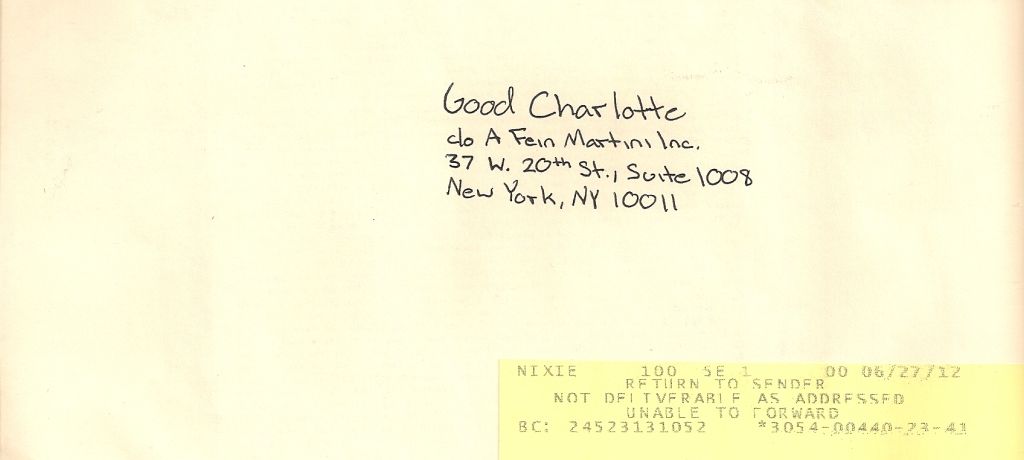 Good Charlotte
c/o A Fein Martini Inc.
37 W. 20th St., Suite 1008
New York, NY 10011
NIXIE 100 SE 1 00 06/27/12
RETURN TO SENDER
NOT DELIVERABLE AS ADDRESSED
UNABLE TO FORWARD
BC: 24523131052 *3054-00440-23-41